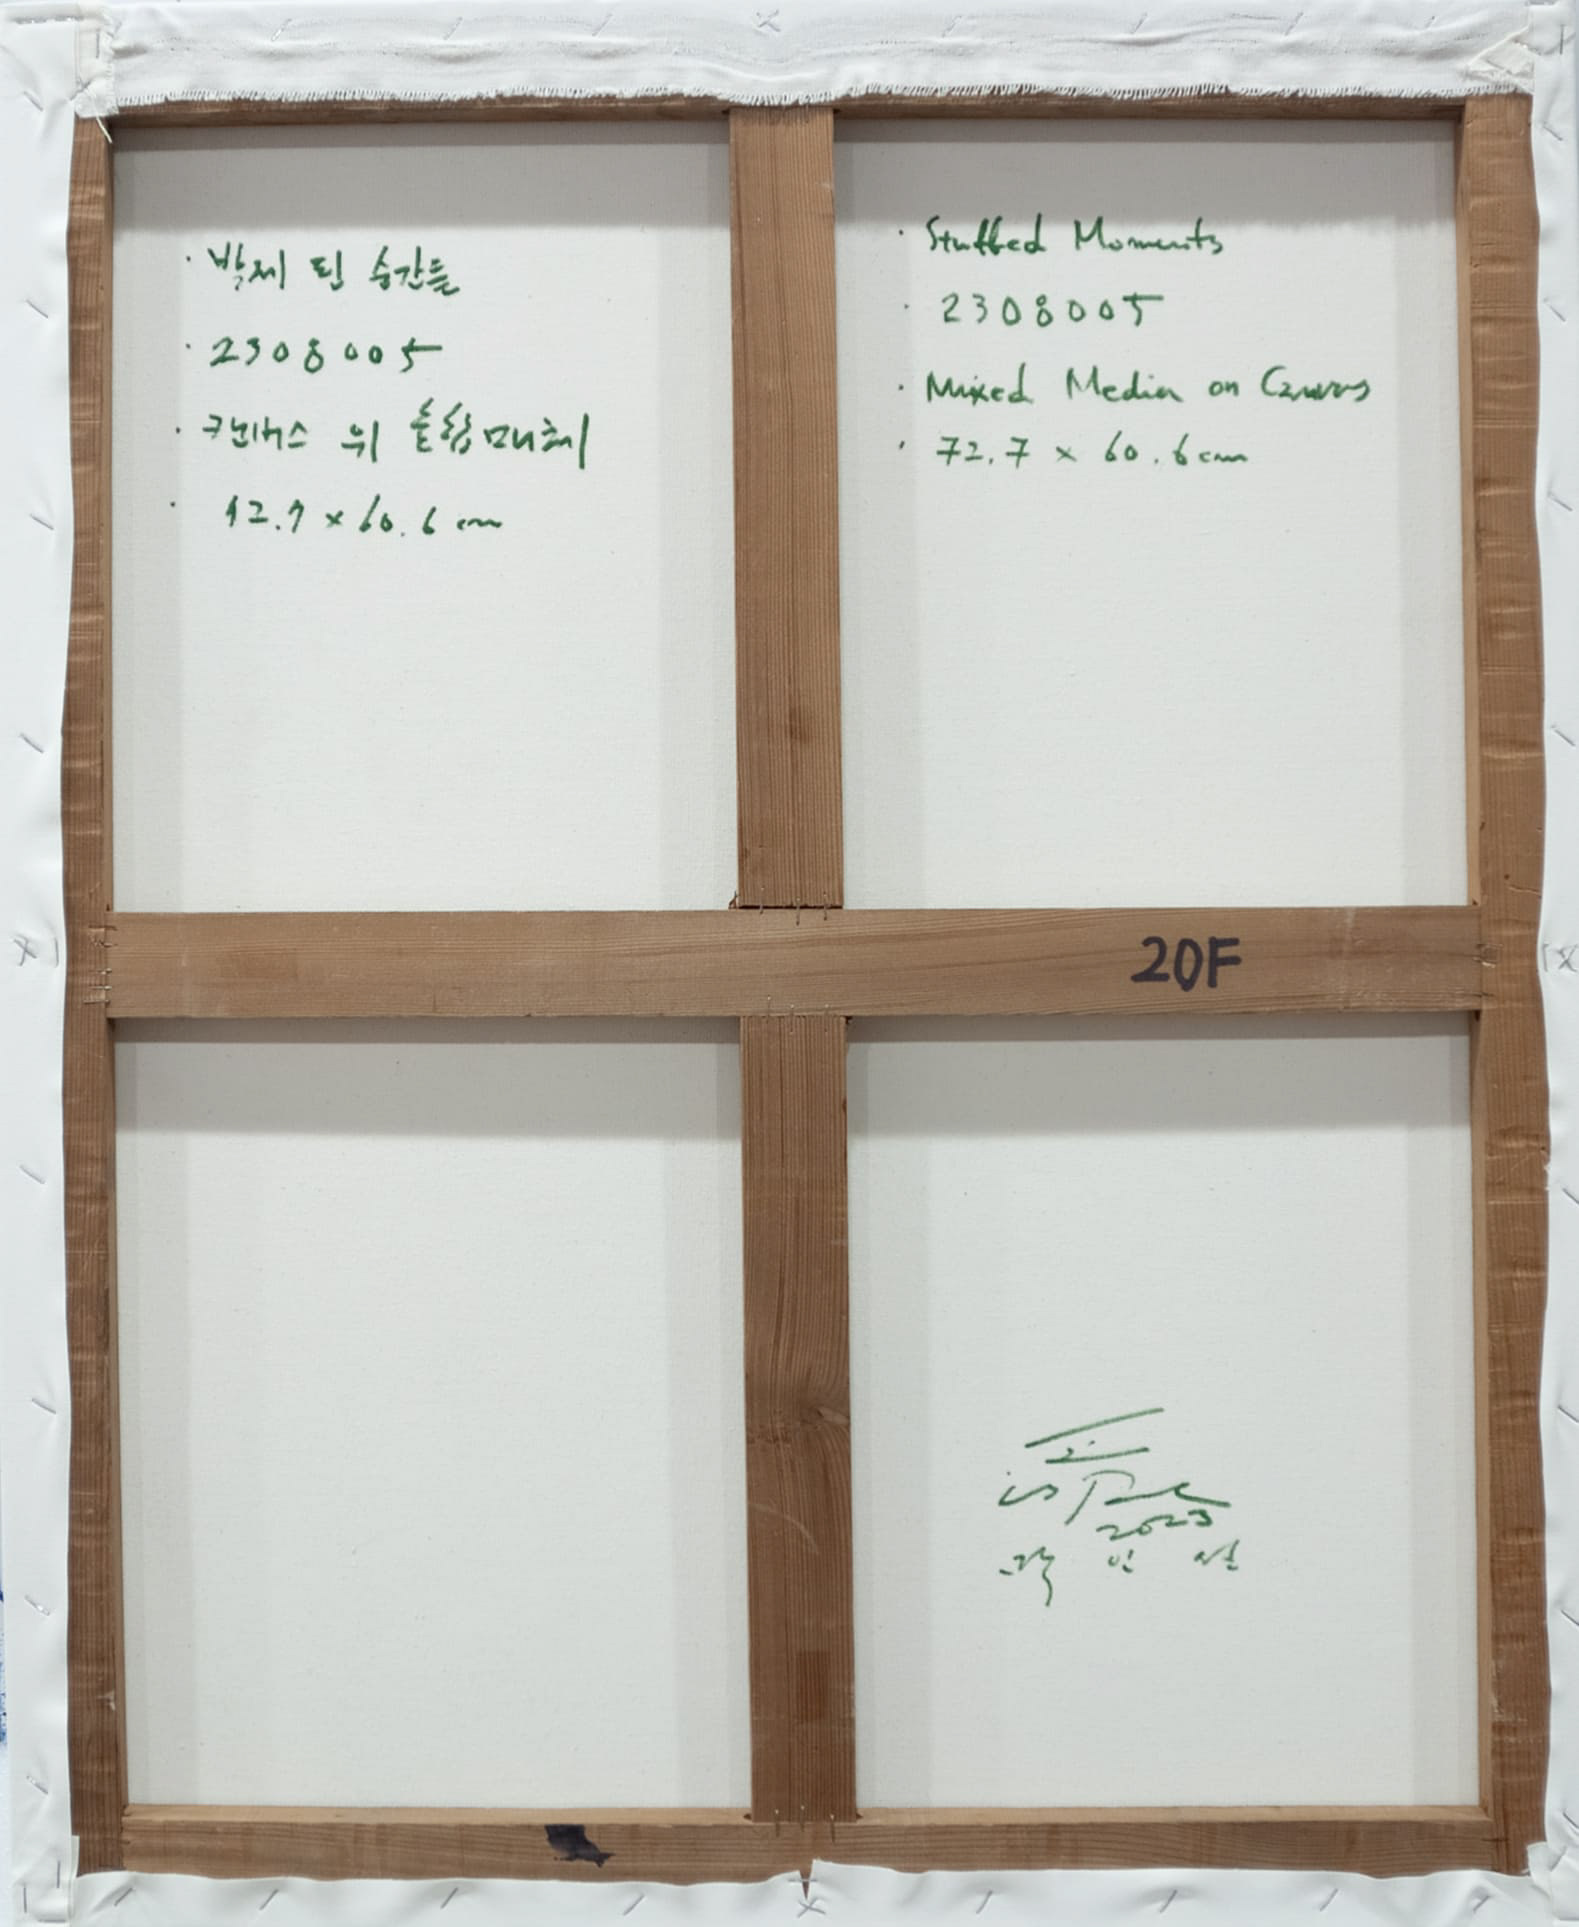 · 박제 된 순간들
· 2308005
· 캔버스 위 혼합매체
· 72.7 x 60.6 cm
· Stuffed Moments
· 2308005
· Mixed Media on Canvas
· 72.7 x 60.6 cm
20F
2023